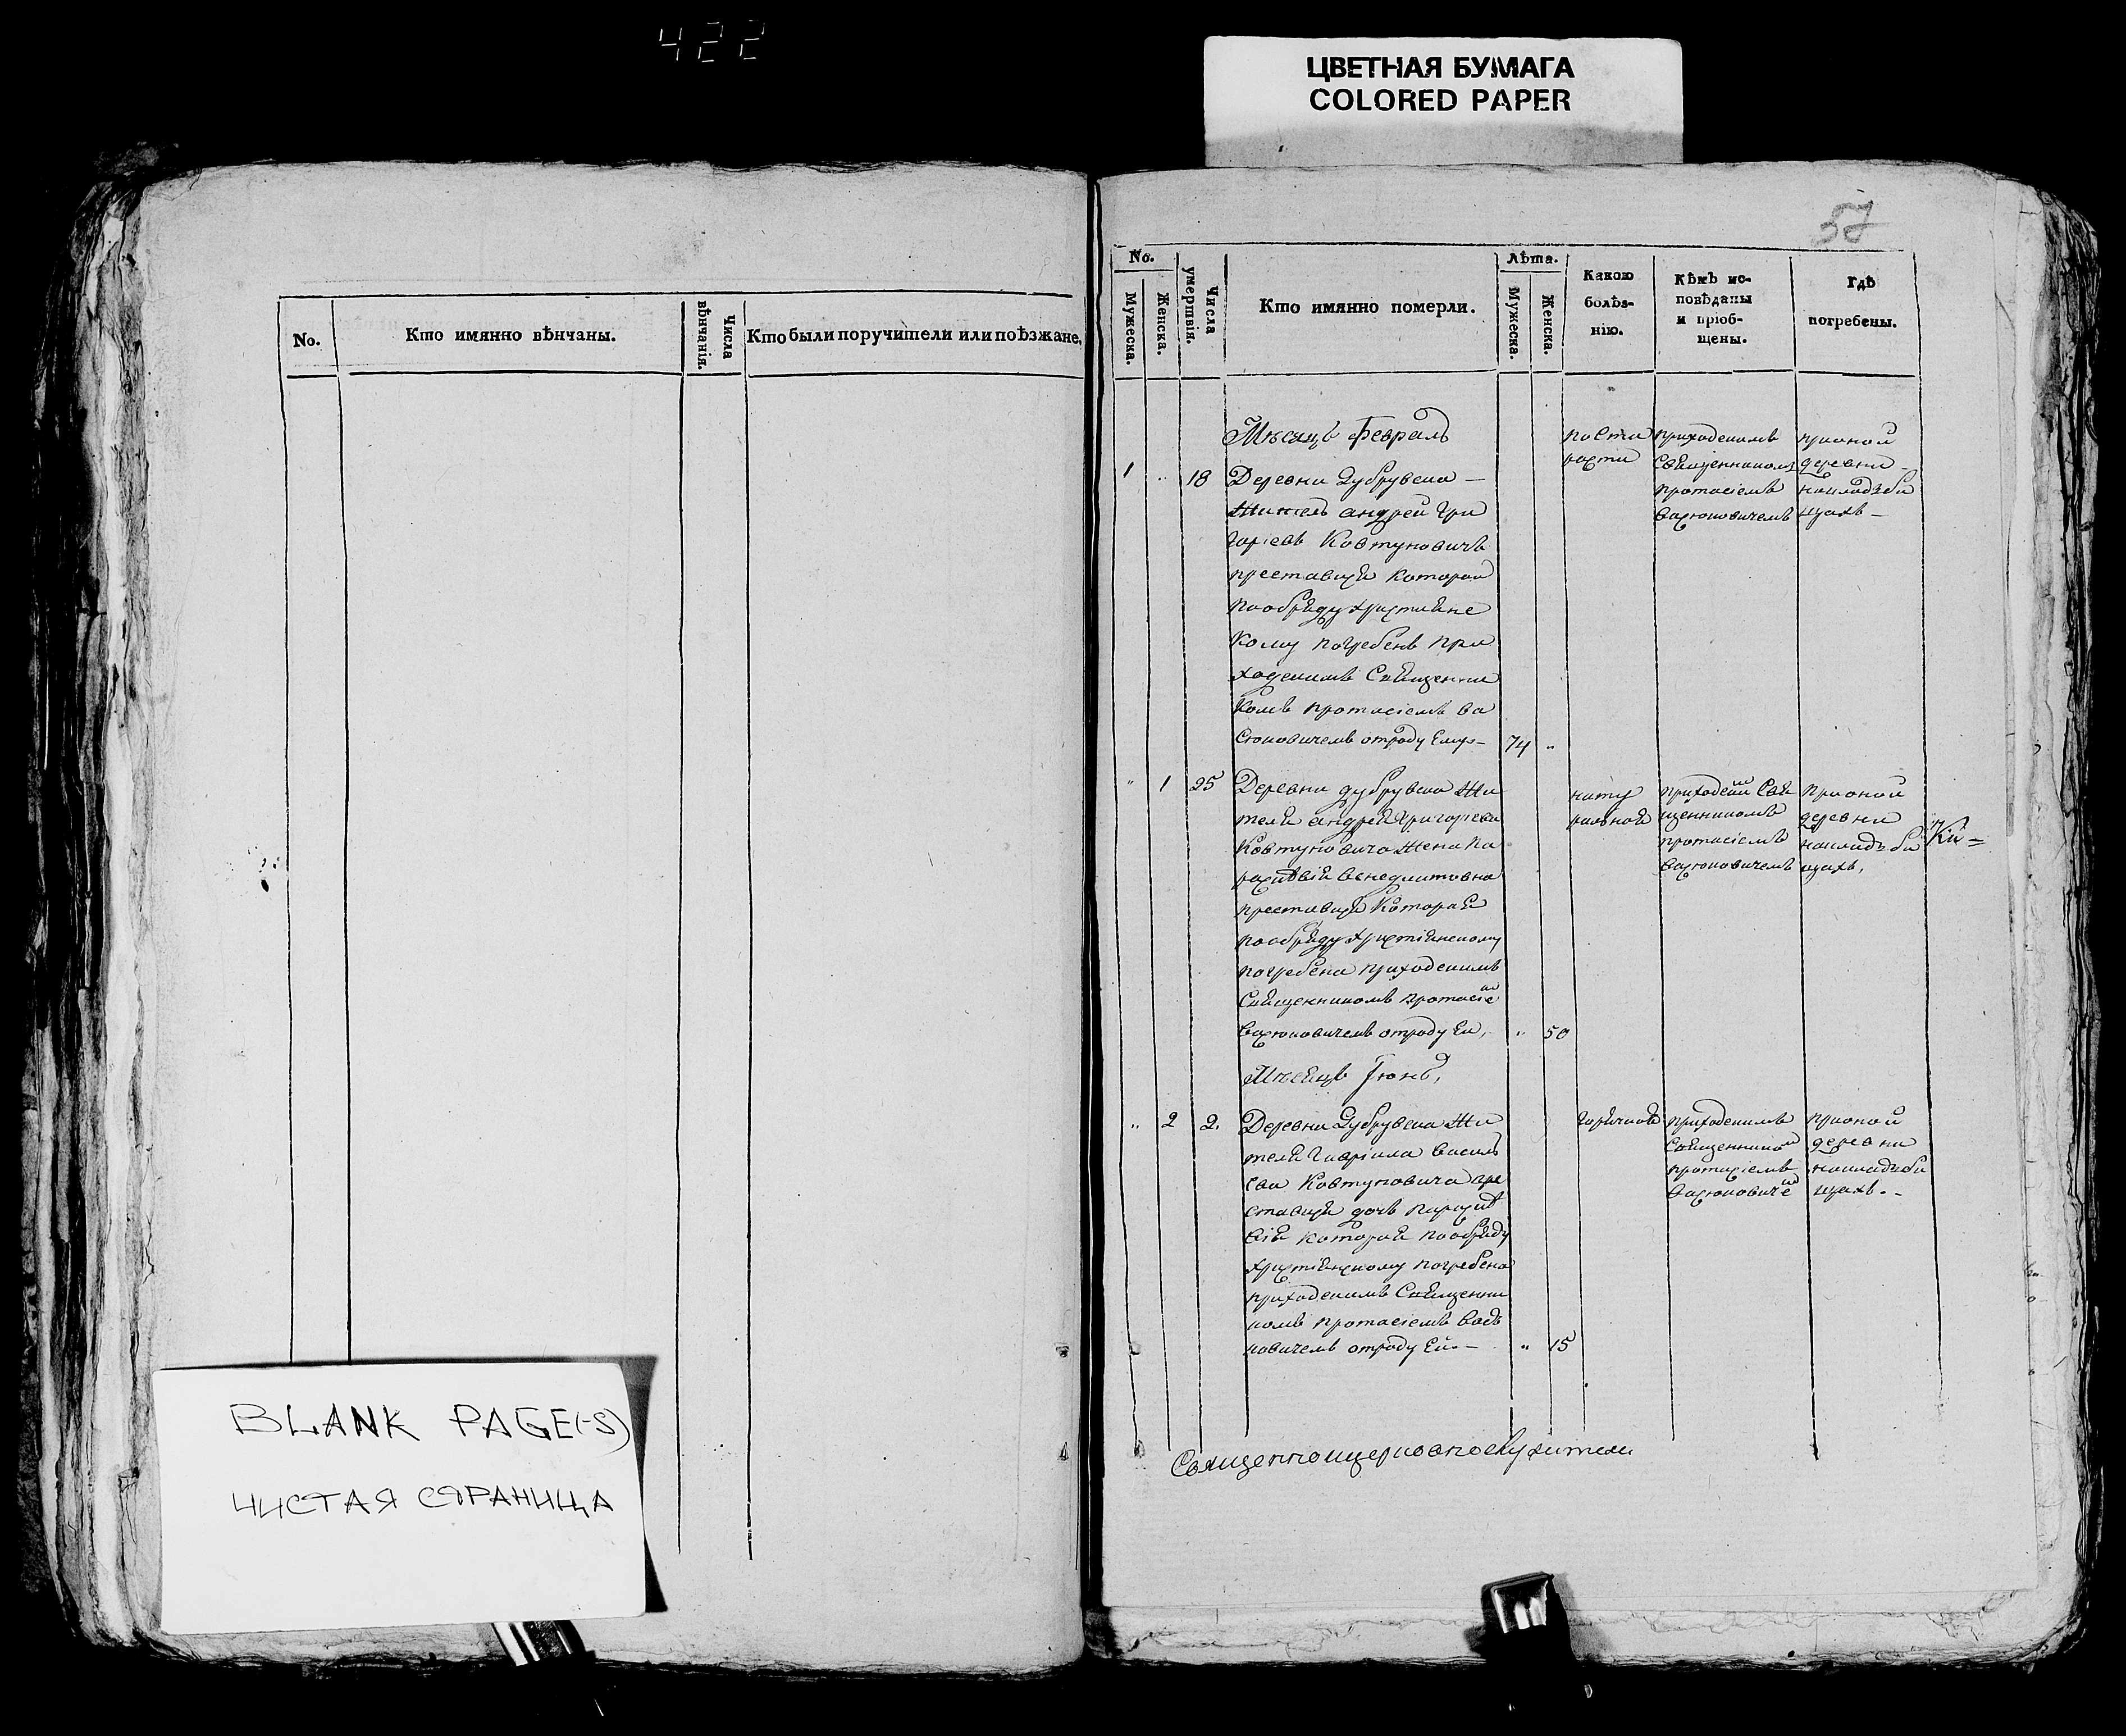 422
ЦВЕТНАЯ БУМАГА
COLORED PAPER
No.
Кто имянно вѣнчаны.
Числа
вѣнчанія.
Кто были поручители или поѣзжане,
BLANK PAGE(-S)
ЧИСТАЯ СТРАНИЦА
57
No.
Мужеска.
Женска.
Числа
умертвія.
Кто имянно померли.
Лѣта.
Мужеска.
Женска.
Какою
болѣз-
нію.
Кѣмъ ис-
повѣданы
и пріоб-
щены.
Гдѣ
погребены.
Мѣсяцъ Февраль
1 " 18 Деревни Дубрувска
Житель андрей Гри
горіевъ Ковтуновичъ
преставися которой
пообряду христианс
кому погребенъ при
ходскимъ Священни
комъ протасіемъ Ва
Сюковичемъ отроду Ему- 74 "
по Ста
рости
приходскимъ
Священникомъ
протасіемъ
Васюковичемъ
прионой
деревни
накладъби
щахъ
" 1 25 Деревни дубрувска Жи
теля андрея Григоріева
Ковтуновича Жена Па
венедиктовна
преставися Которая
пообряду христіянскому
погребена приходскимъ
Священникомъ протасіемъ
Васюковичемъ отроду Ей, " 50
нату
ральной
приходским Свя
щенникомъ
протасіемъ
Васюковичемъ
прионой
деревни
накладъби
щахъ,
Мѣсяцъ Іюнь,
" 2 2. Деревни Дубрувска Жи
теля Гавріила Василь
ева Ковтуновича пре
ставися дочь
которая пообряду
христіянскому погребена
приходскимъ Священни
комъ протасіемъ Васю
ковичемъ отроду Ей.- " 15
горячкой
приходскимъ
Священником
протасіемъ
Васюковичем
прионой
деревни
накладъби
щахъ.-
Священноицерковнослужители